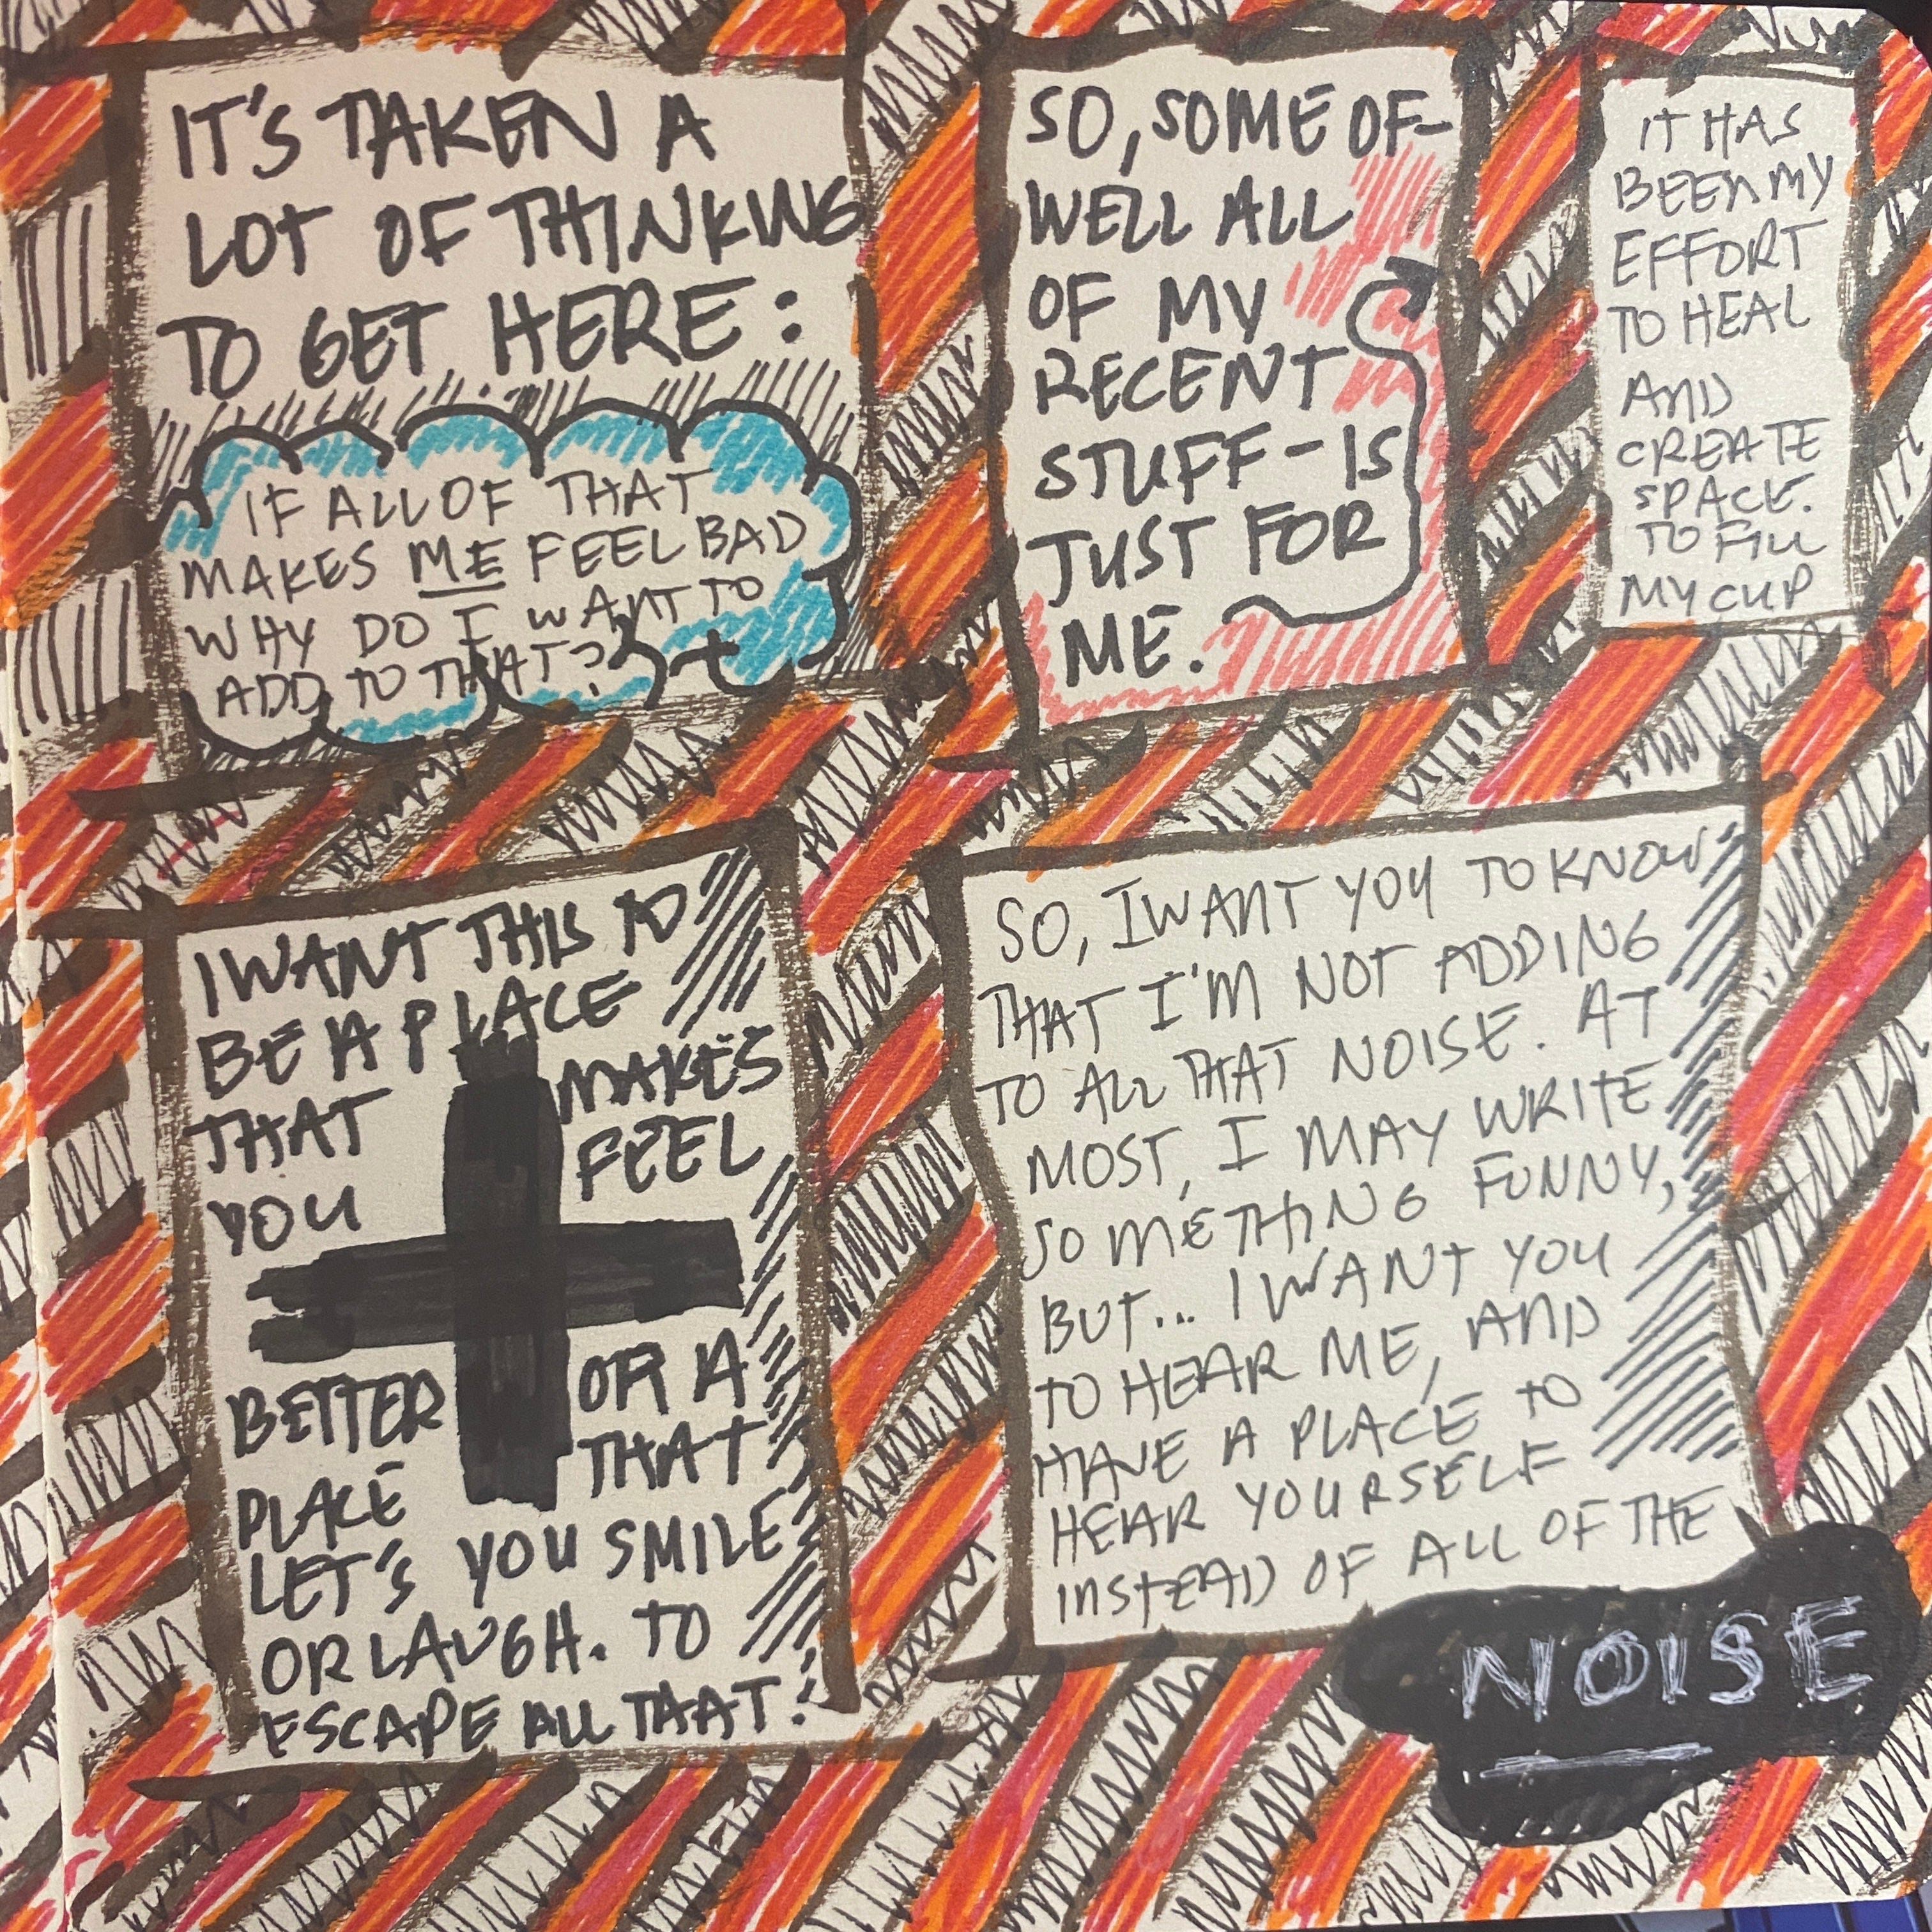 IT'S TAKEN A
LOT OF THINKING
TO GET HERE:
IF ALL OF THAT
MAKES ME FEEL BAD
WHY DO I WANT TO
ADD TO THAT?
SO, SOME OF-
WELL ALL
OF MY
RECENT
STUFF - IS
JUST FOR
ME.
IT HAS
BEEN MY
EFFORT
TO HEAL
AND
CREATE
SPACE.
TO FILL
MY CUP
I WANT THIS TO
BE A PLACE
THAT MAKES
YOU FEEL
BETTER OR A
PLACE THAT
LET'S YOU SMILE
OR LAUGH. TO
ESCAPE ALL THAT.
SO, I WANT YOU TO KNOW
THAT I'M NOT ADDING
TO ALL THAT NOISE. AT
MOST, I MAY WRITE
SOMETHING FUNNY,
BUT... I WANT YOU
TO HEAR ME, AND
HAVE A PLACE TO
HEAR YOURSELF
INSTEAD OF ALL OF THE
NOISE